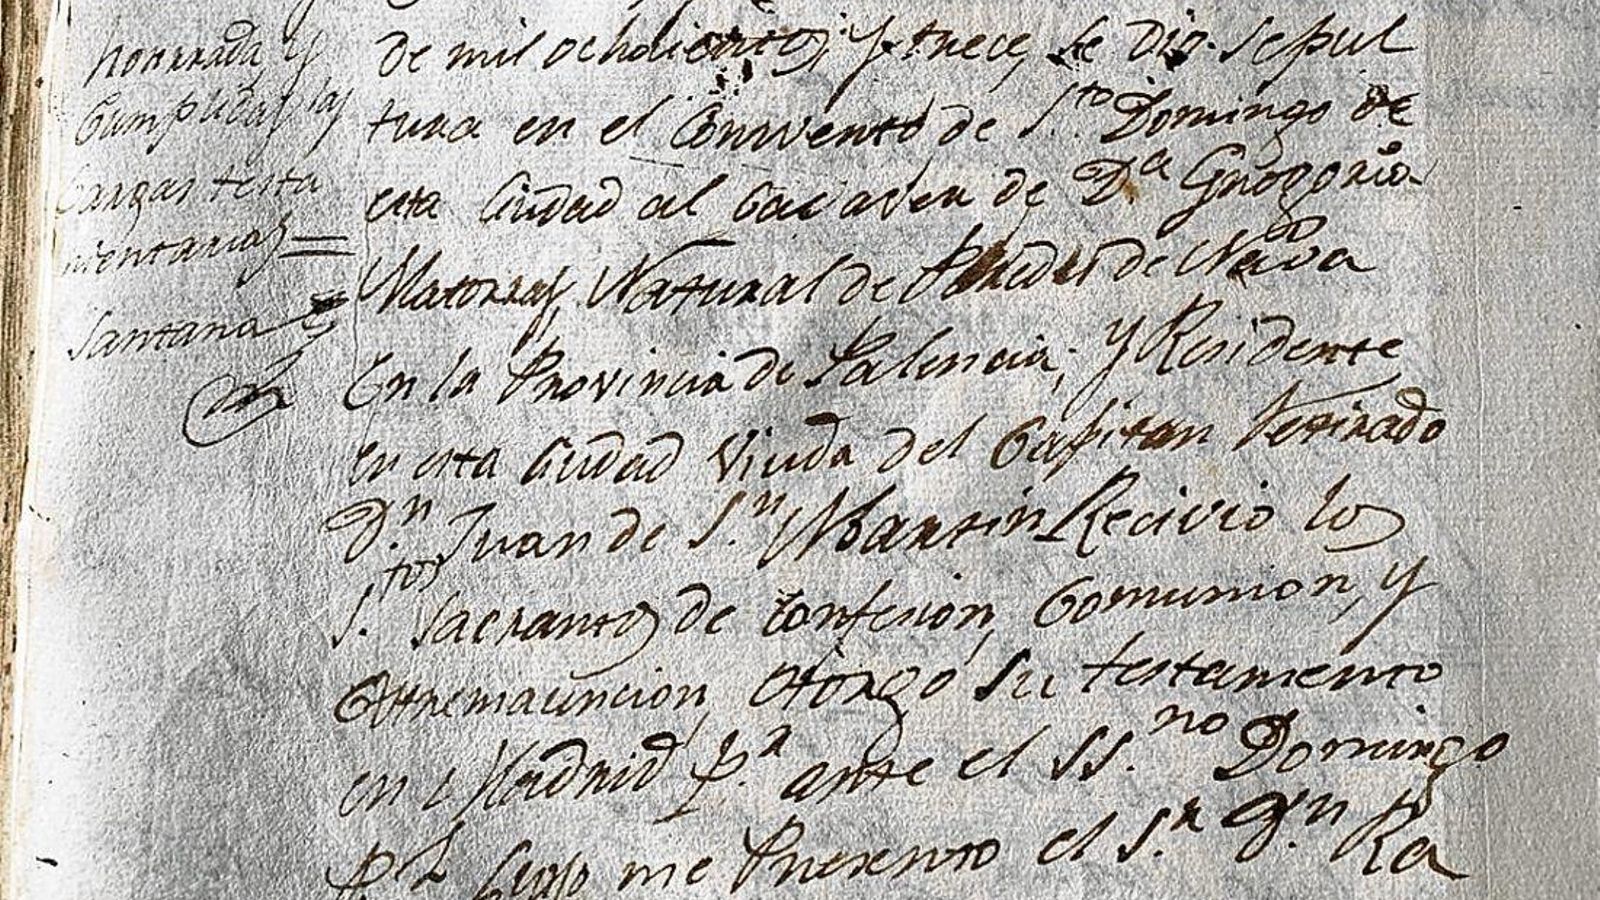 honrrada y
Cumplidas las
Cargas testa
mentarias =
Santana
de mil ochocientos y trece, se dio sepul
tura en el Convento de S.to Domingo de
esta Ciudad al Cadaver de D.a Gregoria
Matorras, Natural de Paredes de Nava
En la Provincia de Palencia, y Residente
en esta Ciudad Viuda del Capitan retirado
D.n Juan de S.n Martin Recivio los
S.tos Sacramtos de Confesion, Comunion, y
Extremauncion, otorgó su testamento
en Madrid P.r ante el SS.no Domingo
me Presento el S.r D.n Ra